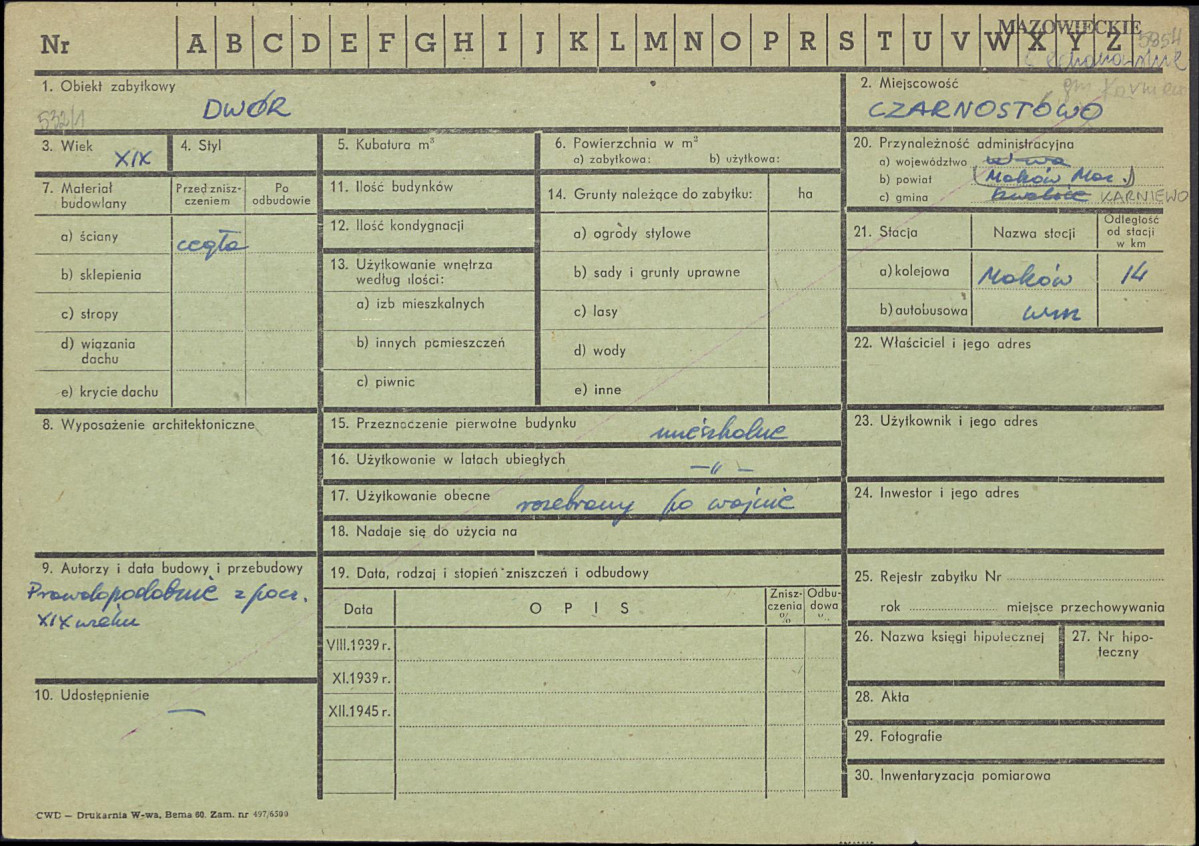 MAZOWIECKIE
Nr A B C D E F G H I J K L M N O P R S T U V W X Y Z
5354
1. Obiekt zabytkowy
DWÓR
532/1
2. Miejscowość
CZARNOSTOWO
3. Wiek
XIX
4. Styl
5. Kubatura m³
6. Powierzchnia w m²
a) zabytkowa: b) użytkowa:
20. Przynależność administracyjna
a) województwo W-wa
b) powiat (Maków Maz.)
c) gmina KARNIEWO
7. Materiał budowlany
Przed zniszczeniem
Po odbudowie
a) ściany cegła
b) sklepienia
c) stropy
d) wiązania dachu
e) krycie dachu
11. Ilość budynków
12. Ilość kondygnacji
13. Użytkowanie wnętrza według ilości:
a) izb mieszkalnych
b) innych pomieszczeń
c) piwnic
14. Grunty należące do zabytku: ha
a) ogrody stylowe
b) sady i grunty uprawne
c) lasy
d) wody
e) inne
21. Stacja Nazwa stacji Odległość od stacji w km
a) kolejowa Maków 14
b) autobusowa
22. Właściciel i jego adres
8. Wyposażenie architektoniczne
15. Przeznaczenie pierwotne budynku mieszkalne
16. Użytkowanie w latach ubiegłych –„–
17. Użytkowanie obecne rozebrany po wojnie
18. Nadaje się do użycia na
23. Użytkownik i jego adres
24. Inwestor i jego adres
9. Autorzy i data budowy i przebudowy
Prawdopodobnie z pocz.
XIX wieku
10. Udostępnienie
—
19. Data, rodzaj i stopień zniszczeń i odbudowy
Data OPIS Zniszczenia % Odbudowa %
VIII.1939 r.
XI.1939 r.
XII.1945 r.
25. Rejestr zabytku Nr
rok miejsce przechowywania
26. Nazwa księgi hipotecznej
27. Nr hipoteczny
28. Akta
29. Fotografie
30. Inwentaryzacja pomiarowa
CWD — Drukarnia W-wa, Bema 60. Zam. nr 497/6500